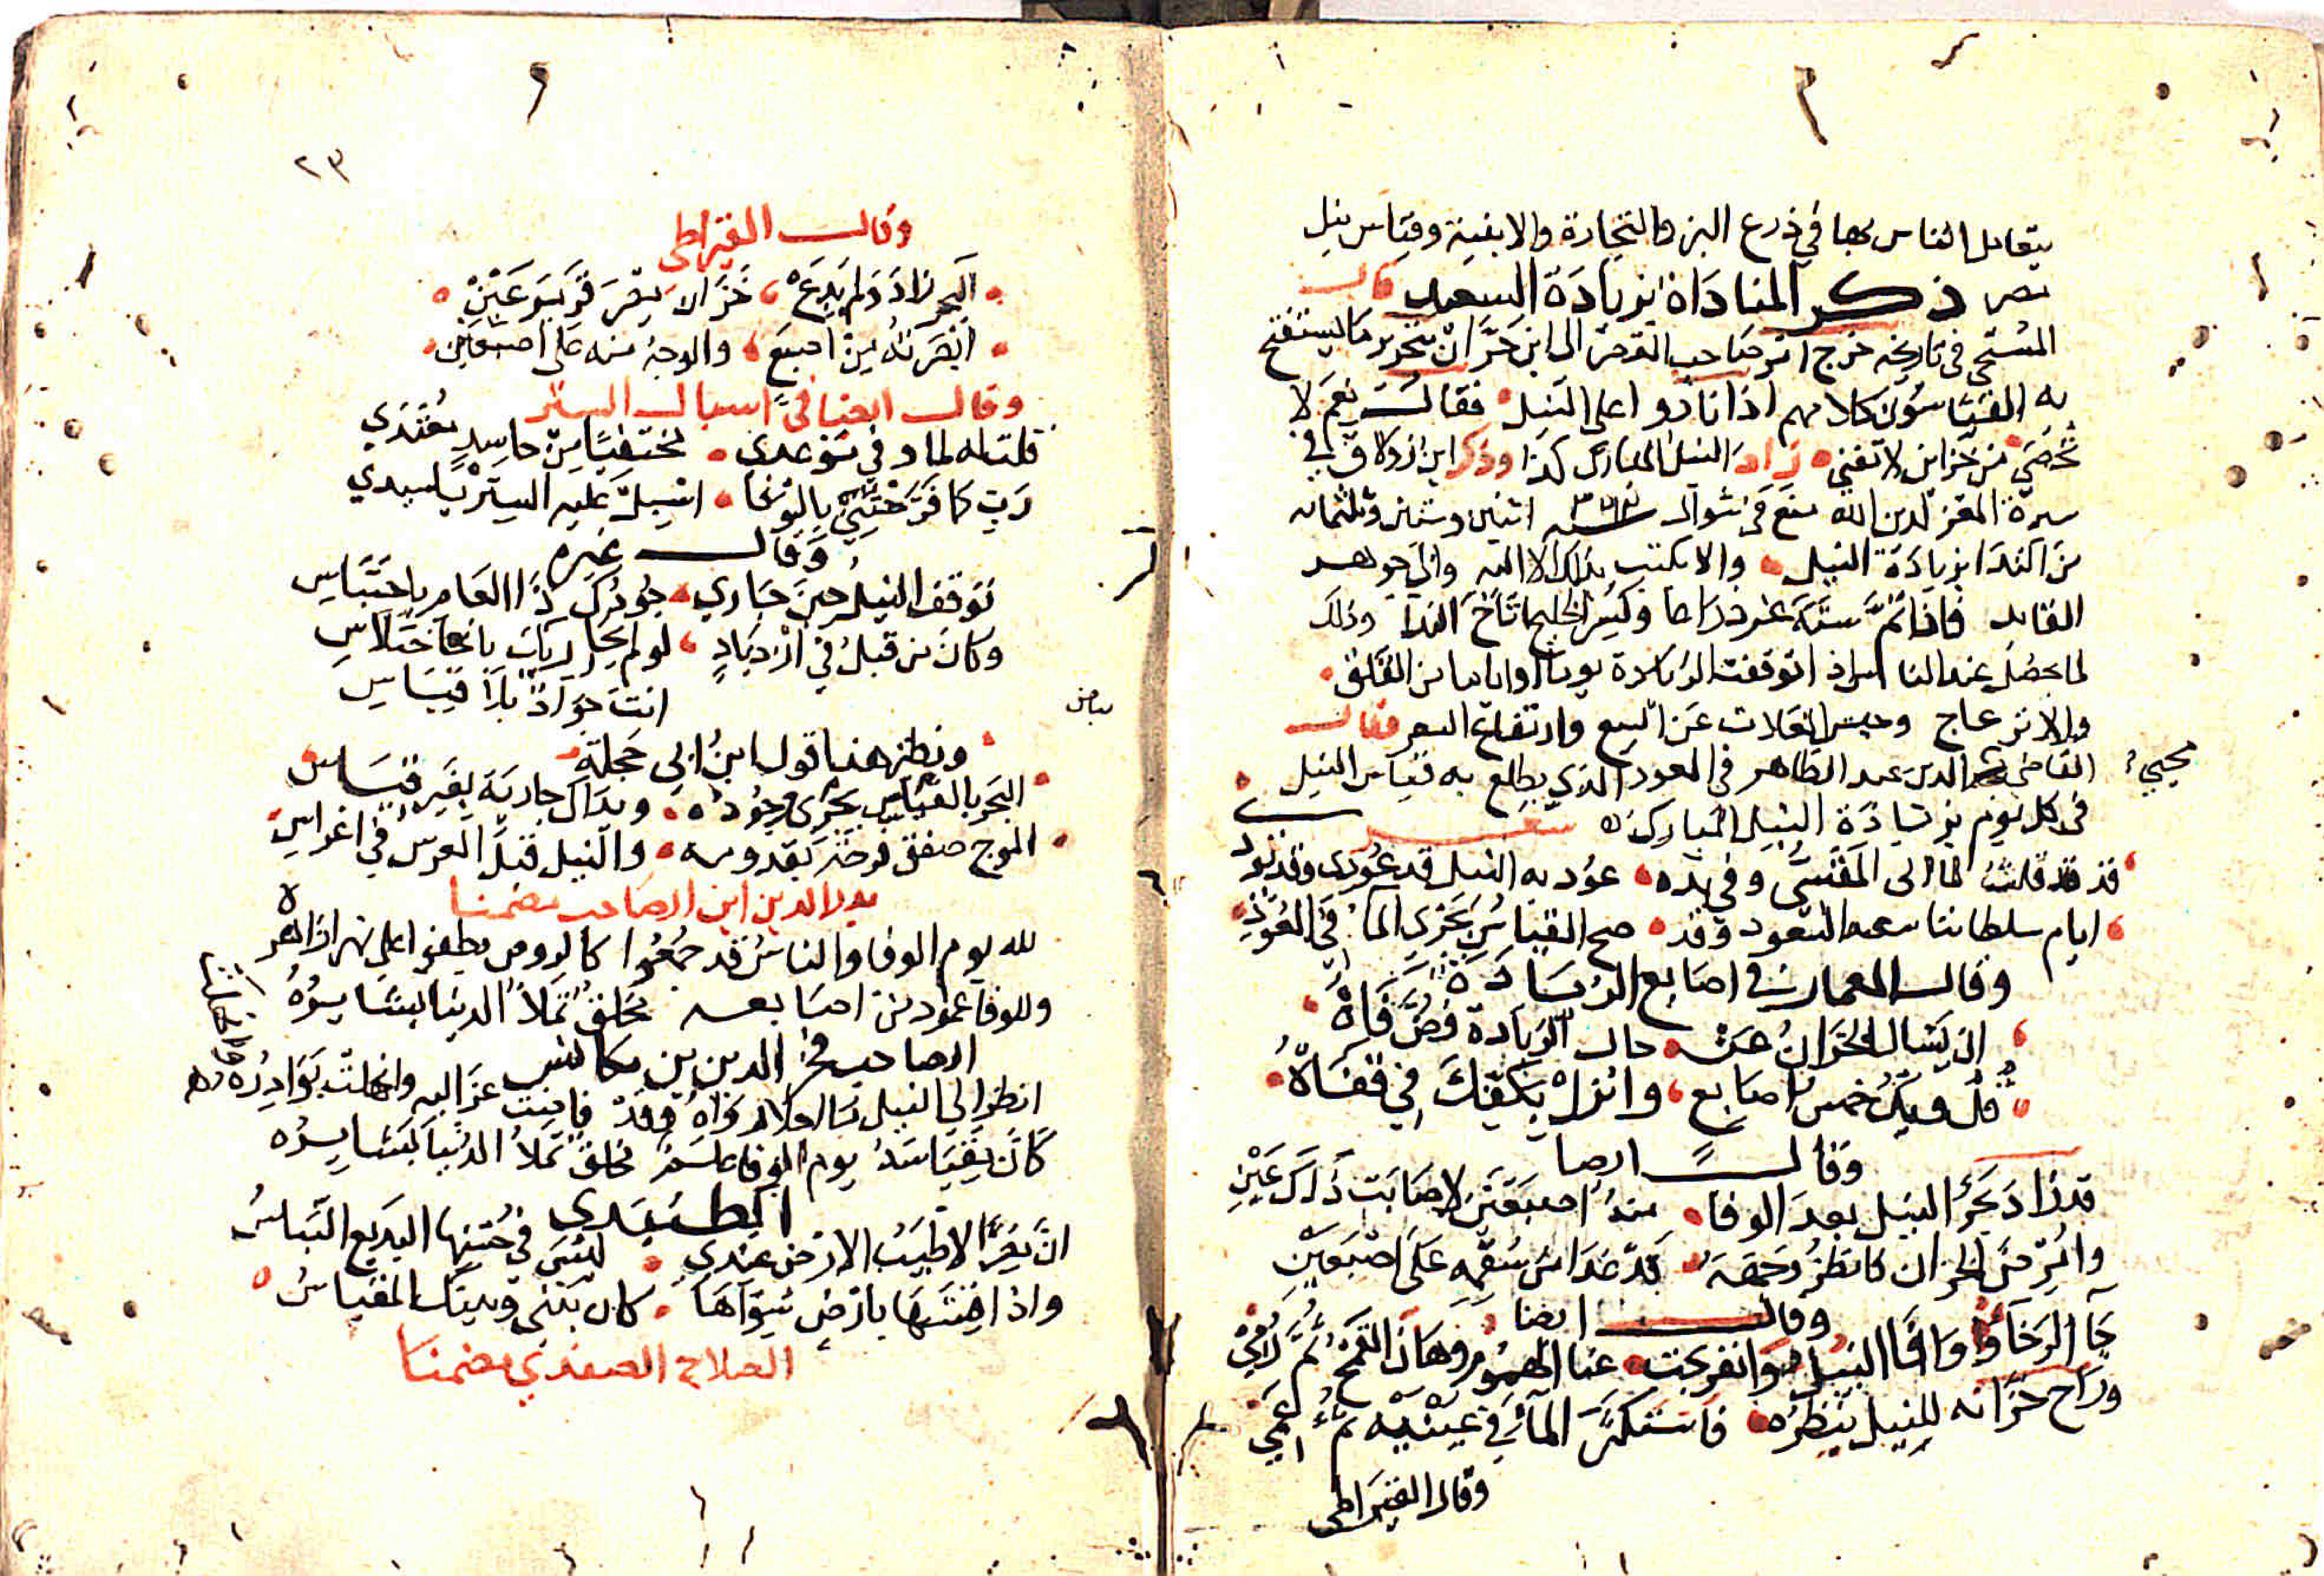 يتعامل الناس بها في ذرع البز والتجارة والابنية وقياس نيل
مصر ذكر المناداة بزيادة السعيد قال
المسبحي في تاريخه خرج امر صاحب القصر الى ابن حيران بتحرير ما يستفتح
به القياسون كلامهم اذا نادوا على النيل فقال نعم لا
تحصى من خزاين لا تفنى زاد النيل المبارك كذا وذكر ابن زولاق في
سيرة المعز لدين الله منع في شوال سنه ٣٦٢ اثنين وستين وثلثمائه
من النداء بزيادة النيل والا يكتب بذلك الا اليه والى جوهر
القايد فاذا تم ستة عشر ذراعا وكسر الخليج اباح الندا وذلك
لما يحصل عند الناس اذا توقفت الزيادة يوما او اياما من القلق
والانزعاج وحبس الغلات عن البيع وارتفاع السعر فقال
القاضي محيي الدين عبد الظاهر في العود الذي يطلع به قياس النيل
في كل يوم بزيادة النيل المبارك شعر
قد قلت لما اتى المقسى وفي يده عود به النيل قد عودي وقد نودي
ايام سلطاننا سعد السعود وقد صح القياس بجري الماء في العود
وقال المعمار في اصابع الزيادة
ان شال الخزان عنه حال الزيادة فض فاه
قل ويك خمس اصابع وانزل بكفك في قفاه
وقال ايضا
قد زاد بحر النيل بعد الوفا منه اصبعين لا صابت ذلك عين
وامرض الخزان فانظر وجهه قد غدا من سقمه على اصبعين
وقال ايضا
جا الرخا ووافا النيل وانفرجت عنا الهموم وهان القمح ثم رمي
وراح خزانه للنيل ينظره فاستكن الماء في عينيه ثم عمي
وقال القيراطي
٢٣
وقال القيراطي
البحر زاد ولم يدع خزانا يقر قرير عين
ابصرته من اصبع والوجه منه على اصبعين
وقال ايضا في اسبال الستر
قلت له لما وفى موعدي مختفيا من حاسد معتدي
رب كما فرحتني بالوفا اسبل عليه الستر يا سيدي
وقال غيره
توقف النيل حين جاري جودك ذا العام باحتباس
وكان من قبل في ازدياد لو لم يجاريك باختلاس
انت جواد بلا قياس
بياض
ونظير هذا قول ابن ابي حجلة
البحر بالقياس يجرى جوده ونداك جارية بغير قياس
الموج صفق فرحة بقدومه والنيل قبل العرس في اغراس
بدر الدين ابن الصاحب مضمنا
لله يوم الوفا والناس قد جمعوا كالروض يطفو على نهر ازاهره
وللوفا عمود من اصابعه مخلق تملا الدنيا بشايره
الصاحب فخر الدين بن مكانس
انظر الى النيل فاينت عزاليه وانهلت بوادره
كان مقياسه يوم الوفا مخلق تملا الدنيا بشايره
الطنبدي
ان مصرا لاطيب الارض عندي ليس في حسنها البديع التباس
واذا قستها بارض سواها كان بيني وبينك المقياس
الصلاح الصفدي مضمنا